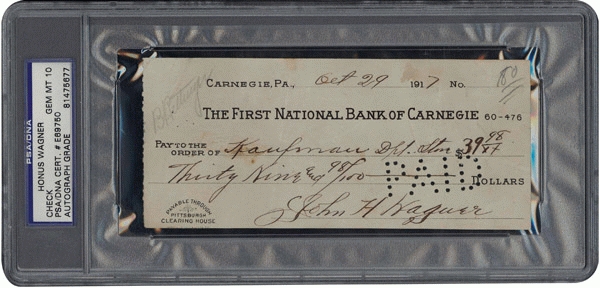 PSA/DNA
HONUS WAGNER
CHECK GEM MT 10
PSA/DNA CERT. # E69750
AUTOGRAPH GRADE 81475677
CARNEGIE, PA., Oct 29 1917 No.
THE FIRST NATIONAL BANK OF CARNEGIE 60-476
PAY TO THE
ORDER OF Kaufman Dpt. Stre $39 98/xx
Thirty Nine and 98/100 DOLLARS
PAID
PAYABLE THROUGH
PITTSBURGH
CLEARING HOUSE
John H Wagner